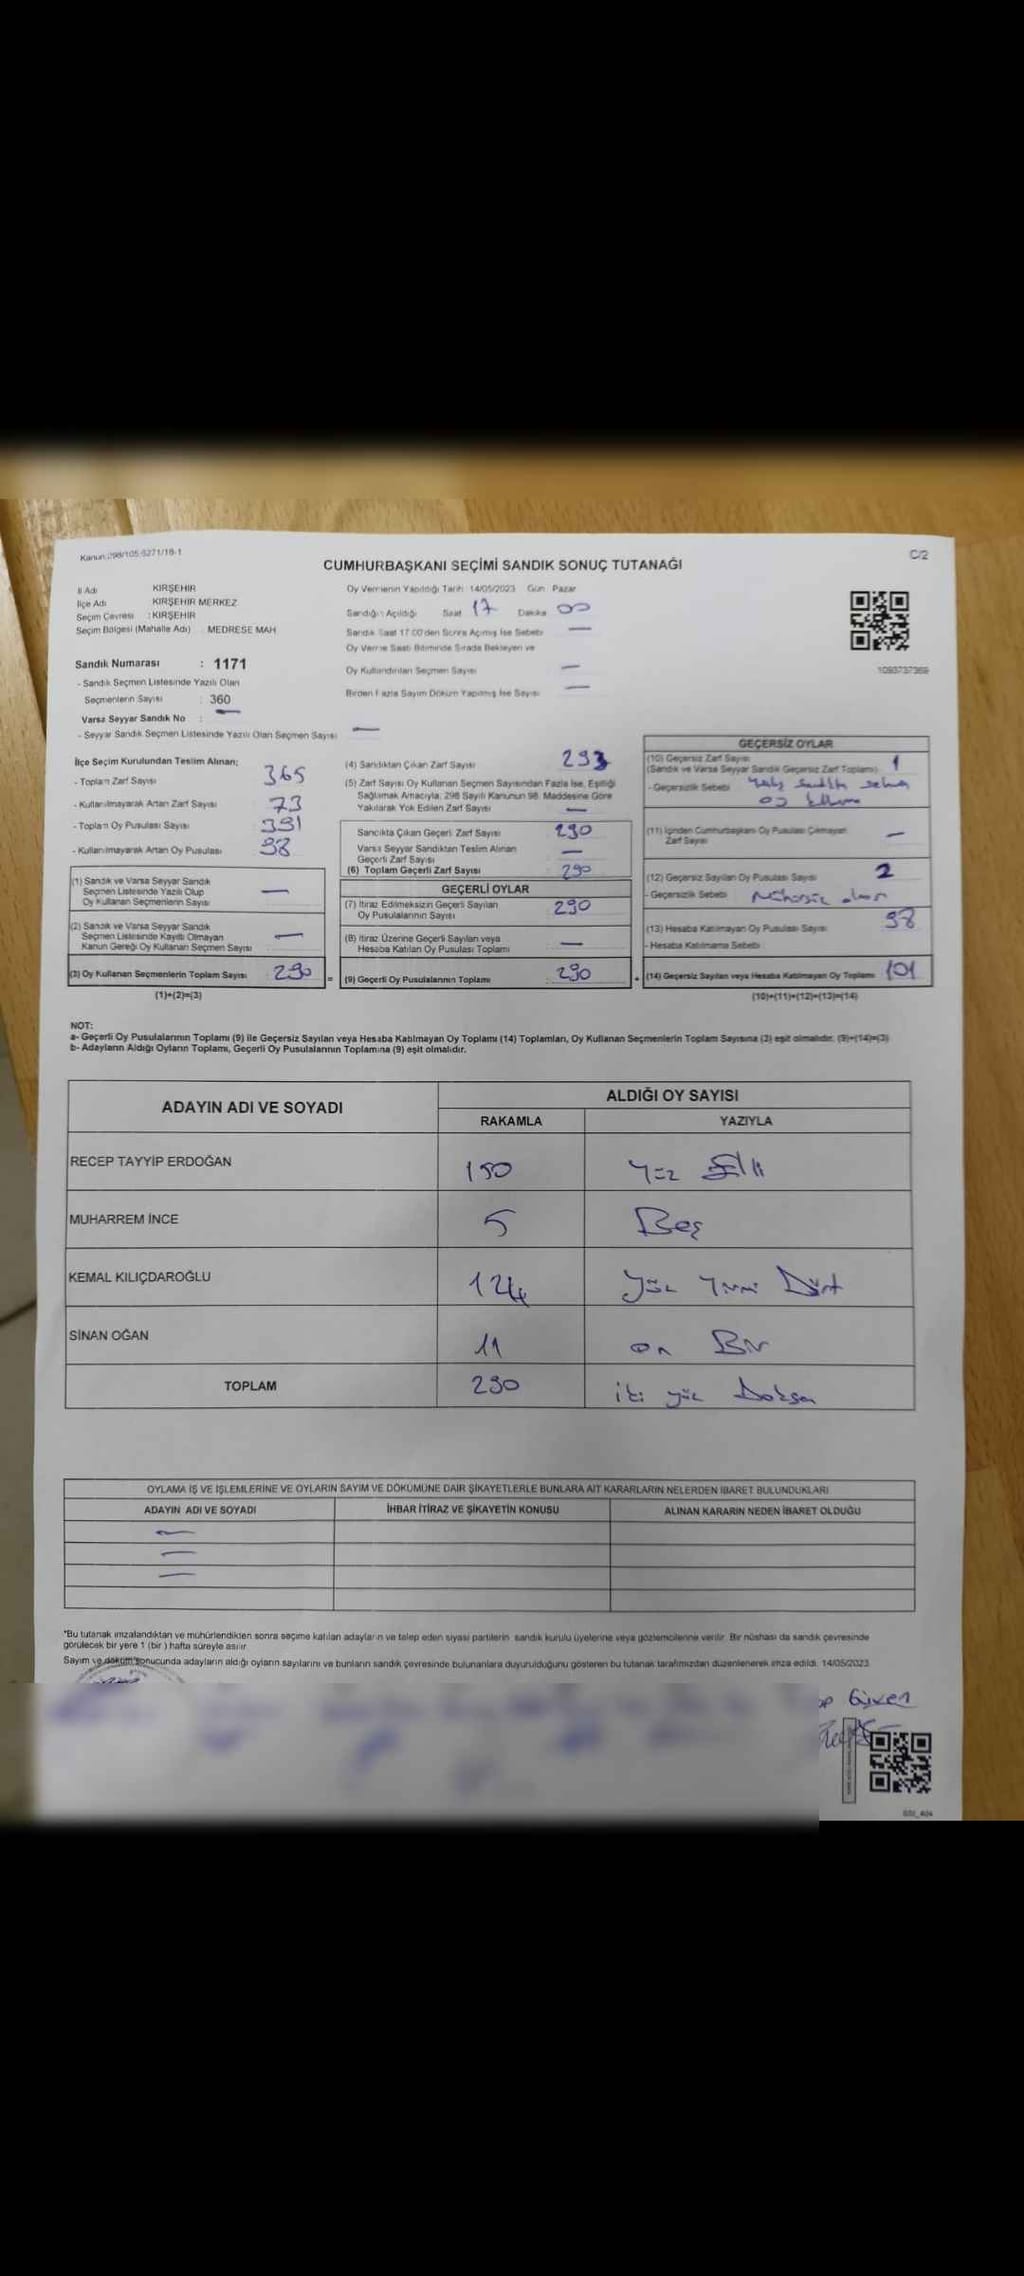 Kanun:298/105-5271/18-1
C/2
CUMHURBAŞKANI SEÇİMİ SANDIK SONUÇ TUTANAĞI
İl Adı KIRŞEHİR
İlçe Adı KIRŞEHİR MERKEZ
Seçim Çevresi : KIRŞEHİR
Seçim Bölgesi (Mahalle Adı) : MEDRESE MAH
Sandık Numarası : 1171
- Sandık Seçmen Listesinde Yazılı Olan
Seçmenlerin Sayısı : 360
Varsa Seyyar Sandık No : —
- Seyyar Sandık Seçmen Listesinde Yazılı Olan Seçmen Sayısı —
Oy Vermenin Yapıldığı Tarih: 14/05/2023 Gün: Pazar
Sandığın Açıldığı Saat 17 Dakika 00
Sandık Saat 17:00'den Sonra Açılmış İse Sebebi —
Oy Verme Saati Bitiminde Sırada Bekleyen ve
Oy Kullandırılan Seçmen Sayısı —
Birden Fazla Sayım Döküm Yapılmış İse Sayısı —
1093737369
İlçe Seçim Kurulundan Teslim Alınan;
- Toplam Zarf Sayısı 365
- Kullanılmayarak Artan Zarf Sayısı 73
- Toplam Oy Pusulası Sayısı 391
- Kullanılmayarak Artan Oy Pusulası 98
(1) Sandık ve Varsa Seyyar Sandık
Seçmen Listesinde Yazılı Olup
Oy Kullanan Seçmenlerin Sayısı —
(2) Sandık ve Varsa Seyyar Sandık
Seçmen Listesinde Kayıtlı Olmayan
Kanun Gereği Oy Kullanan Seçmen Sayısı —
(3) Oy Kullanan Seçmenlerin Toplam Sayısı 290 =
(1)+(2)=(3)
(4) Sandıktan Çıkan Zarf Sayısı 293
(5) Zarf Sayısı Oy Kullanan Seçmen Sayısından Fazla İse, Eşitliği
Sağlamak Amacıyla, 298 Sayılı Kanunun 98. Maddesine Göre
Yakılarak Yok Edilen Zarf Sayısı —
Sandıkta Çıkan Geçerli Zarf Sayısı 290
Varsa Seyyar Sandıktan Teslim Alınan
Geçerli Zarf Sayısı —
(6) Toplam Geçerli Zarf Sayısı 290
GEÇERLİ OYLAR
(7) İtiraz Edilmeksizin Geçerli Sayılan
Oy Pusulalarının Sayısı 290
(8) İtiraz Üzerine Geçerli Sayılan veya
Hesaba Katılan Oy Pusulası Toplamı —
(9) Geçerli Oy Pusulalarının Toplamı 290 +
GEÇERSİZ OYLAR
(10) Geçersiz Zarf Sayısı 1
(Sandık ve Varsa Seyyar Sandık Geçersiz Zarf Toplamı)
- Geçersizlik Sebebi
(11) İçinden Cumhurbaşkanı Oy Pusulası Çıkmayan
Zarf Sayısı —
(12) Geçersiz Sayılan Oy Pusulası Sayısı 2
- Geçersizlik Sebebi Mühürsüz olan
(13) Hesaba Katılmayan Oy Pusulası Sayısı 98
- Hesaba Katılmama Sebebi
(14) Geçersiz Sayılan veya Hesaba Katılmayan Oy Toplamı 101
(10)+(11)+(12)+(13)=(14)
NOT:
a- Geçerli Oy Pusulalarının Toplamı (9) ile Geçersiz Sayılan veya Hesaba Katılmayan Oy Toplamı (14) Toplamları, Oy Kullanan Seçmenlerin Toplam Sayısına (3) eşit olmalıdır. (9)+(14)=(3)
b- Adayların Aldığı Oyların Toplamı, Geçerli Oy Pusulalarının Toplamına (9) eşit olmalıdır.
ADAYIN ADI VE SOYADI
ALDIĞI OY SAYISI
RAKAMLA YAZIYLA
RECEP TAYYİP ERDOĞAN 150 Yüz Elli
MUHARREM İNCE 5 Beş
KEMAL KILIÇDAROĞLU 124 Yüz Yirmi Dört
SİNAN OĞAN 11 on Bir
TOPLAM 290 iki yüz Doksan
OYLAMA İŞ VE İŞLEMLERİNE VE OYLARIN SAYIM VE DÖKÜMÜNE DAİR ŞİKAYETLERLE BUNLARA AİT KARARLARIN NELERDEN İBARET BULUNDUKLARI
ADAYIN ADI VE SOYADI İHBAR İTİRAZ VE ŞİKAYETİN KONUSU ALINAN KARARIN NEDEN İBARET OLDUĞU
—
—
—
*Bu tutanak imzalandıktan ve mühürlendikten sonra seçime katılan adayların ve talep eden siyasi partilerin sandık kurulu üyelerine veya gözlemcilerine verilir. Bir nüshası da sandık çevresinde
görülecek bir yere 1 (bir) hafta süreyle asılır.
Sayım ve döküm sonucunda adayların aldığı oyların sayılarını ve bunların sandık çevresinde bulunanlara duyurulduğunu gösteren bu tutanak tarafımızdan düzenlenerek imza edildi. 14/05/2023
Güven